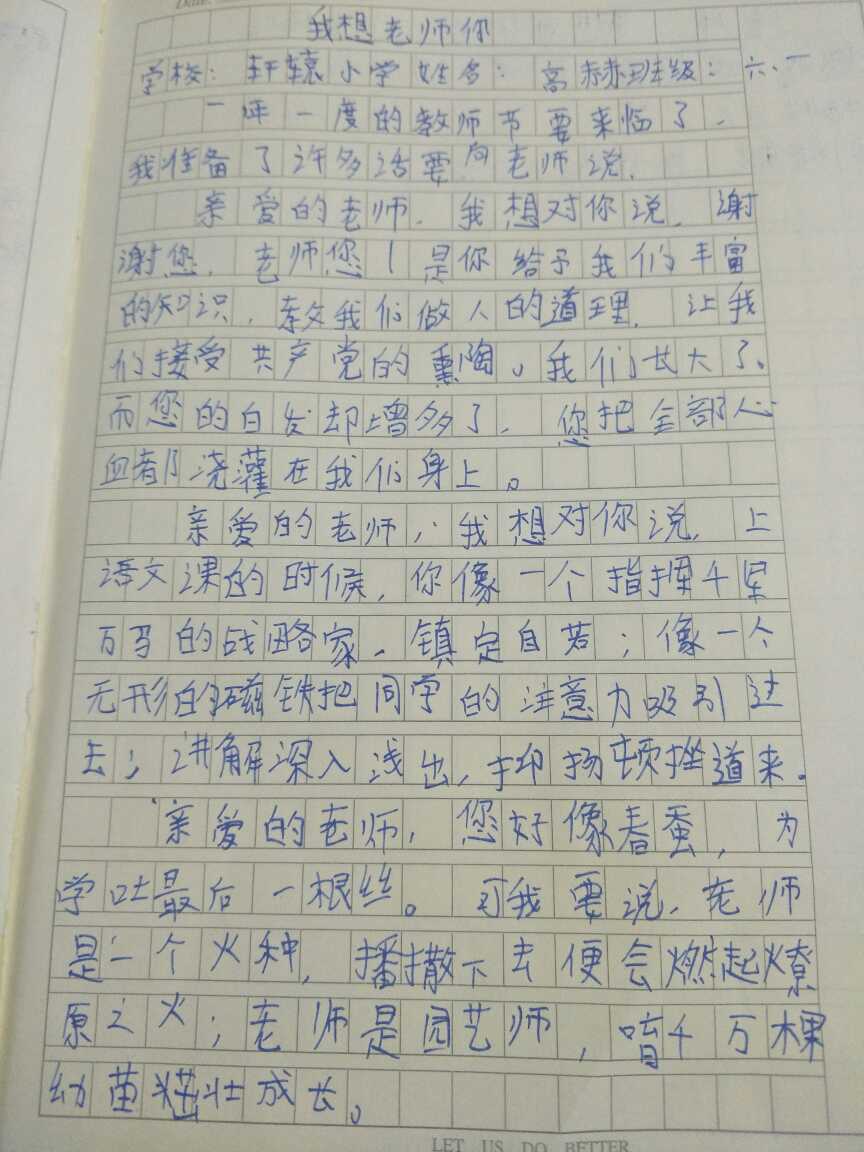 Date.
我想老师你
学校：轩辕小学 姓名：高赫班级：六、一
一年一度的教师节要来临了，
我准备了许多话要向老师说，
亲爱的老师，我想对你说，谢
谢您，老师您！是你给予我们丰富
的知识，教我们做人的道理，让我
们接受共产党的熏陶。我们长大了。
而您的白发却增多了，您把全部心
血都浇灌在我们身上。
亲爱的老师，我想对你说，上
语文课的时候，你像一个指挥千军
万马的战略家，镇定自若；像一个
无形的磁铁把同学的注意力吸引过
去；讲解深入浅出，抑扬顿挫道来。
亲爱的老师，您好像春蚕，为
学吐最后一根丝。可我要说，老师
是一个火种，播撒下去便会燃起燎
原之火；老师是园艺师，育千万棵
幼苗茁壮成长。
LET US DO BETTER